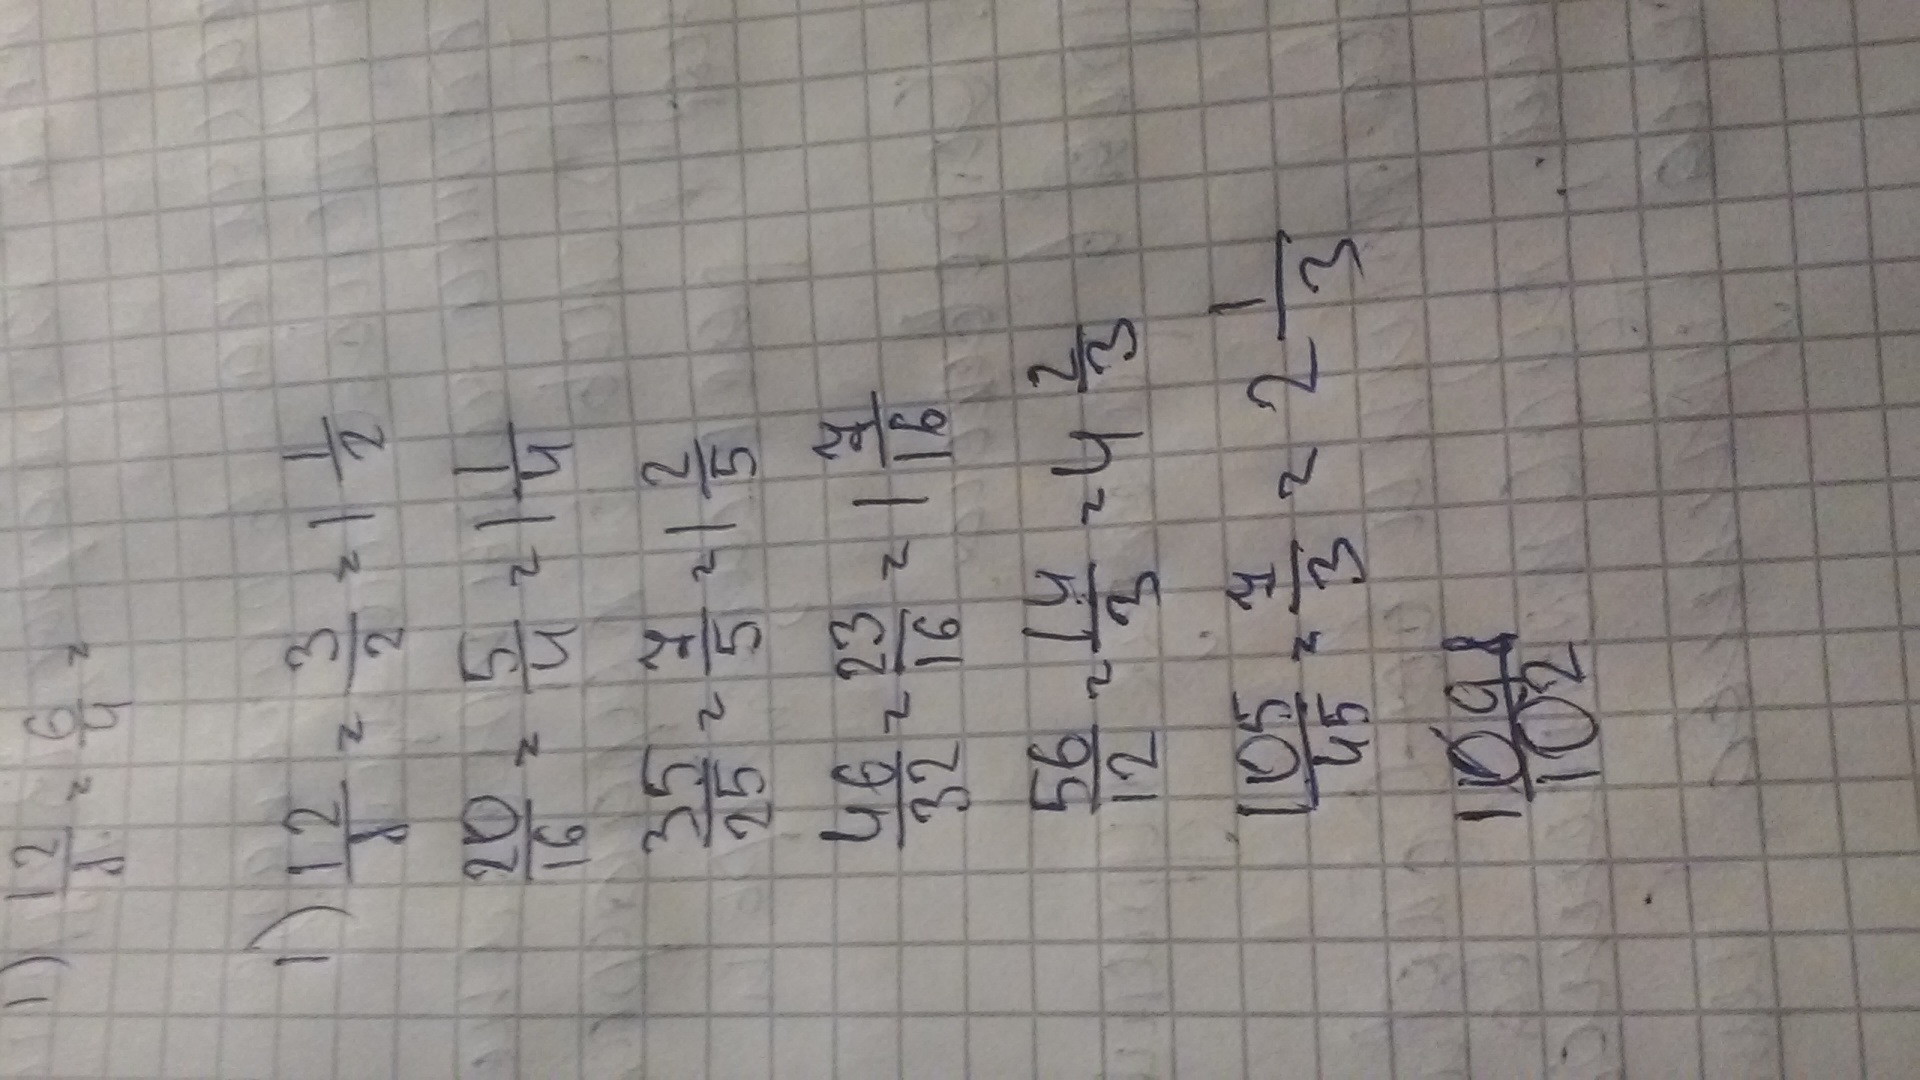 1) 12/8 = 6/4 =
1) 12/8 = 3/2 = 1 1/2
20/16 = 5/4 = 1 1/4
35/25 = 7/5 = 1 2/5
46/32 = 23/16 = 1 7/16
56/12 = 14/3 = 4 2/3
105/45 = 7/3 = 2 1/3
/102